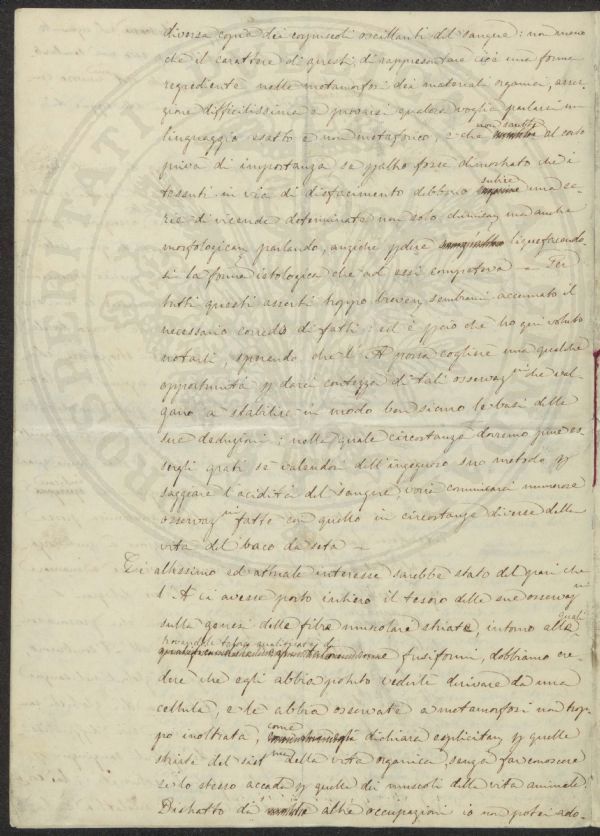 diversa copia dei corpuscoli oscillanti del sangue: non meno
che il carattere di questi di rappresentare cioè una forma
regrediente nelle metamorfosi dei materiali organici, asser-
zione difficilissima a provarsi qualora voglia parlarsi in
linguaggio esatto e non metaforico, e che non sarebbe al certo
priva di importanza se p altro fosse dimostrato che i
tessuti in via di disfacimento debbano subire una se-
rie di vicende determinate non solo chimicam ma anche
morfologicam parlando, anziché p dire liquefacendo-
si la forma istologica che ad essi competeva – Per
tutti questi asserti troppo brevem sembrami accennato il
necessario corredo di fatti: ed è p ciò che ho qui voluto
notarli, sperando che l'A possa cogliere una qualche
opportunità p darci contezza di tali osservazni che val-
gano a stabilire in modo ben sicuro le basi delle
sue deduzioni; nella quale circostanza dovremo pure es-
sergli grati se valendosi dell'ingegnoso suo metodo p
saggiare l'acidità del sangue, vorrà comunicarci numerose
osservazni fatte con quello in circostanze diverse della
vita del baco da seta –
Di altissimo ed attuale interesse sarebbe stato del pari che
l'A ci avesse porto intiero il tesoro delle sue osservazni
sulla genesi delle fibre muscolare striate, intorno alle quali
fusiformi, dobbiamo cre-
dere che egli abbia potuto vederle derivare da una
cellula, e le abbia osservate a metamorfosi non trop-
po inoltrata, come dichiara esplicitam p quelle
striate del sistma della vita organica, senza far conoscere
se lo stesso accada p quelle dei muscoli della vita animale.
Distratto di altre occupazioni io non potei ado-